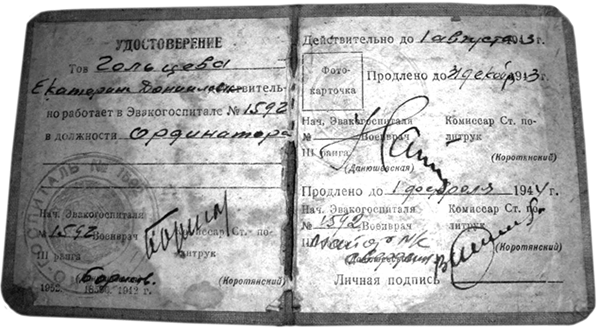 УДОСТОВЕРЕНИЕ
Тов Гольцева
Екатерина Данииловна
действитель-
но работает в Эвакогоспитале № 1592
в должности Ординатора
ГОСПИТАЛЬ №
Нач. Эвакогоспиталя
№ 1592 Военврач
III ранга
Комиссар Ст. по-
литрук
(Коротянский)
1942 г.
Действительно до 1 августа 1943 г.
Фото-
карточка
Продлено до декабр 1943 г.
Нач. Эвакогоспиталя
№ Военврач
III ранга
(Данюшевская)
Комиссар Ст. по-
литрук
(Коротянский)
Продлено до 1 февраля 1944 г.
Нач. Эвакогоспиталя
№ 1592 Военврач
III Майор м/с
Комиссар Ст. по-
литрук
(Коротянский)
Личная подпись